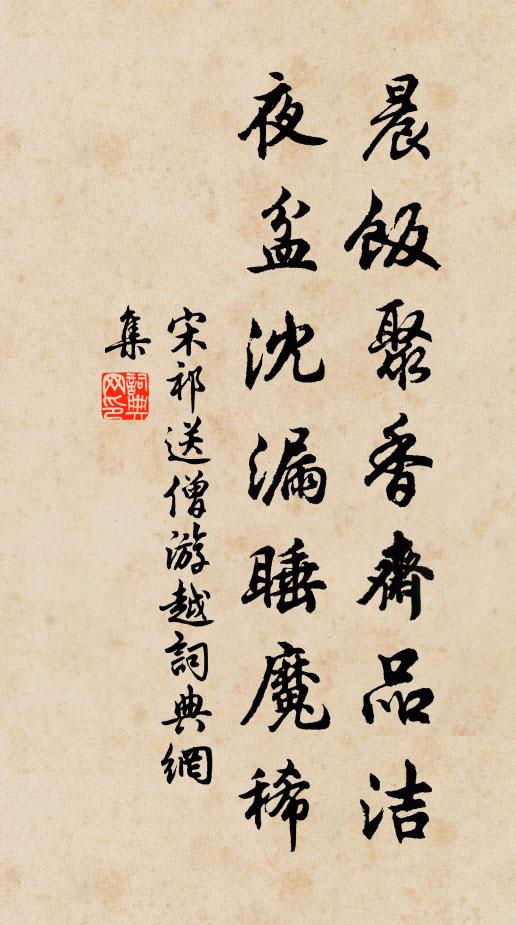 晨飯聚香齋品洁
夜盆沈漏睡魔稀
宋祁送僧游越詞典網
集
詞典网印